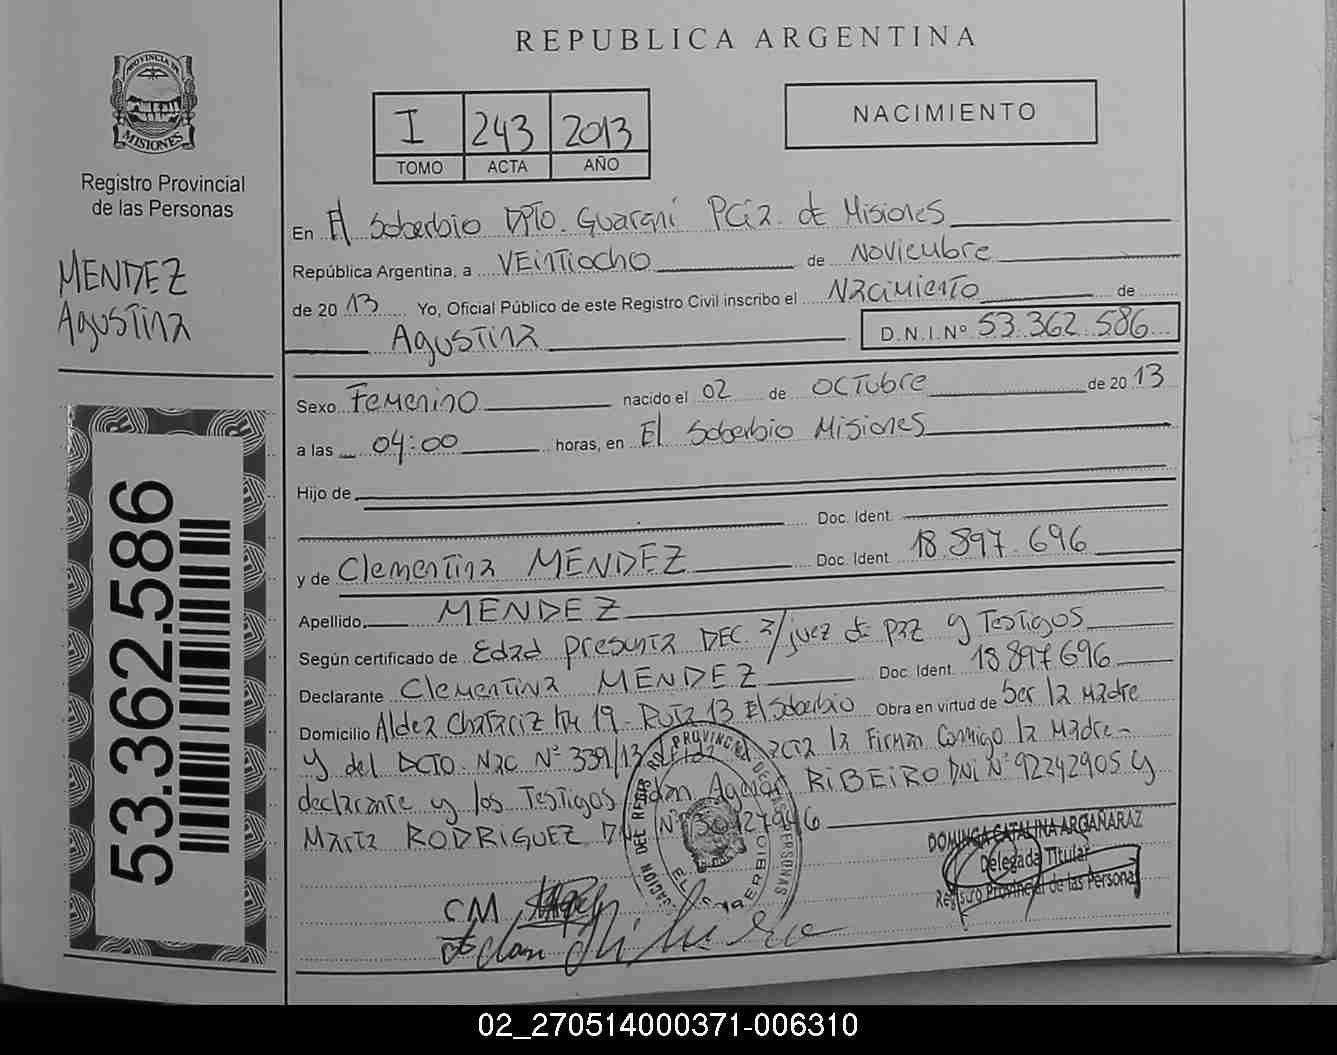 REPUBLICA ARGENTINA
PROVINCIA DE
MISIONES
Registro Provincial
de las Personas
MENDEZ
Agustina
53.362.586
I 243 2013
TOMO ACTA AÑO
NACIMIENTO
En El Soberbio DPTO. Guarani Pcia. de Misiones
República Argentina, a VEintiocho de Noviembre
de 20 13 Yo, Oficial Público de este Registro Civil inscribo el Nacimiento de
Agustina D.N.I.Nº 53.362.586
Sexo Femenino nacido el 02 de OCTubre de 20 13
a las 04:00 horas, en El Soberbio Misiones
Hijo de
Doc. Ident.
y de Clementina MENDEZ Doc. Ident. 18.897.696
Apellido MENDEZ
Según certificado de Edad presunta DEC. a/juez de paz y Testigos
Declarante Clementina MENDEZ Doc. Ident. 18897696
Domicilio Aldea Chafariz Km 19 - Ruta 13 El Soberbio Obra en virtud de Ser la Madre
y del DCTO. Nac Nº 339/13 acta la Firman Conmigo la Madre-
declarante y los Testigos RIBEIRO DNI Nº 92242905 y
Marta RODRIGUEZ
DOMINGA CATALINA ARGAÑARAZ
Delegada Titular
Registro Provincial de las Personas
CM
02_270514000371-006310